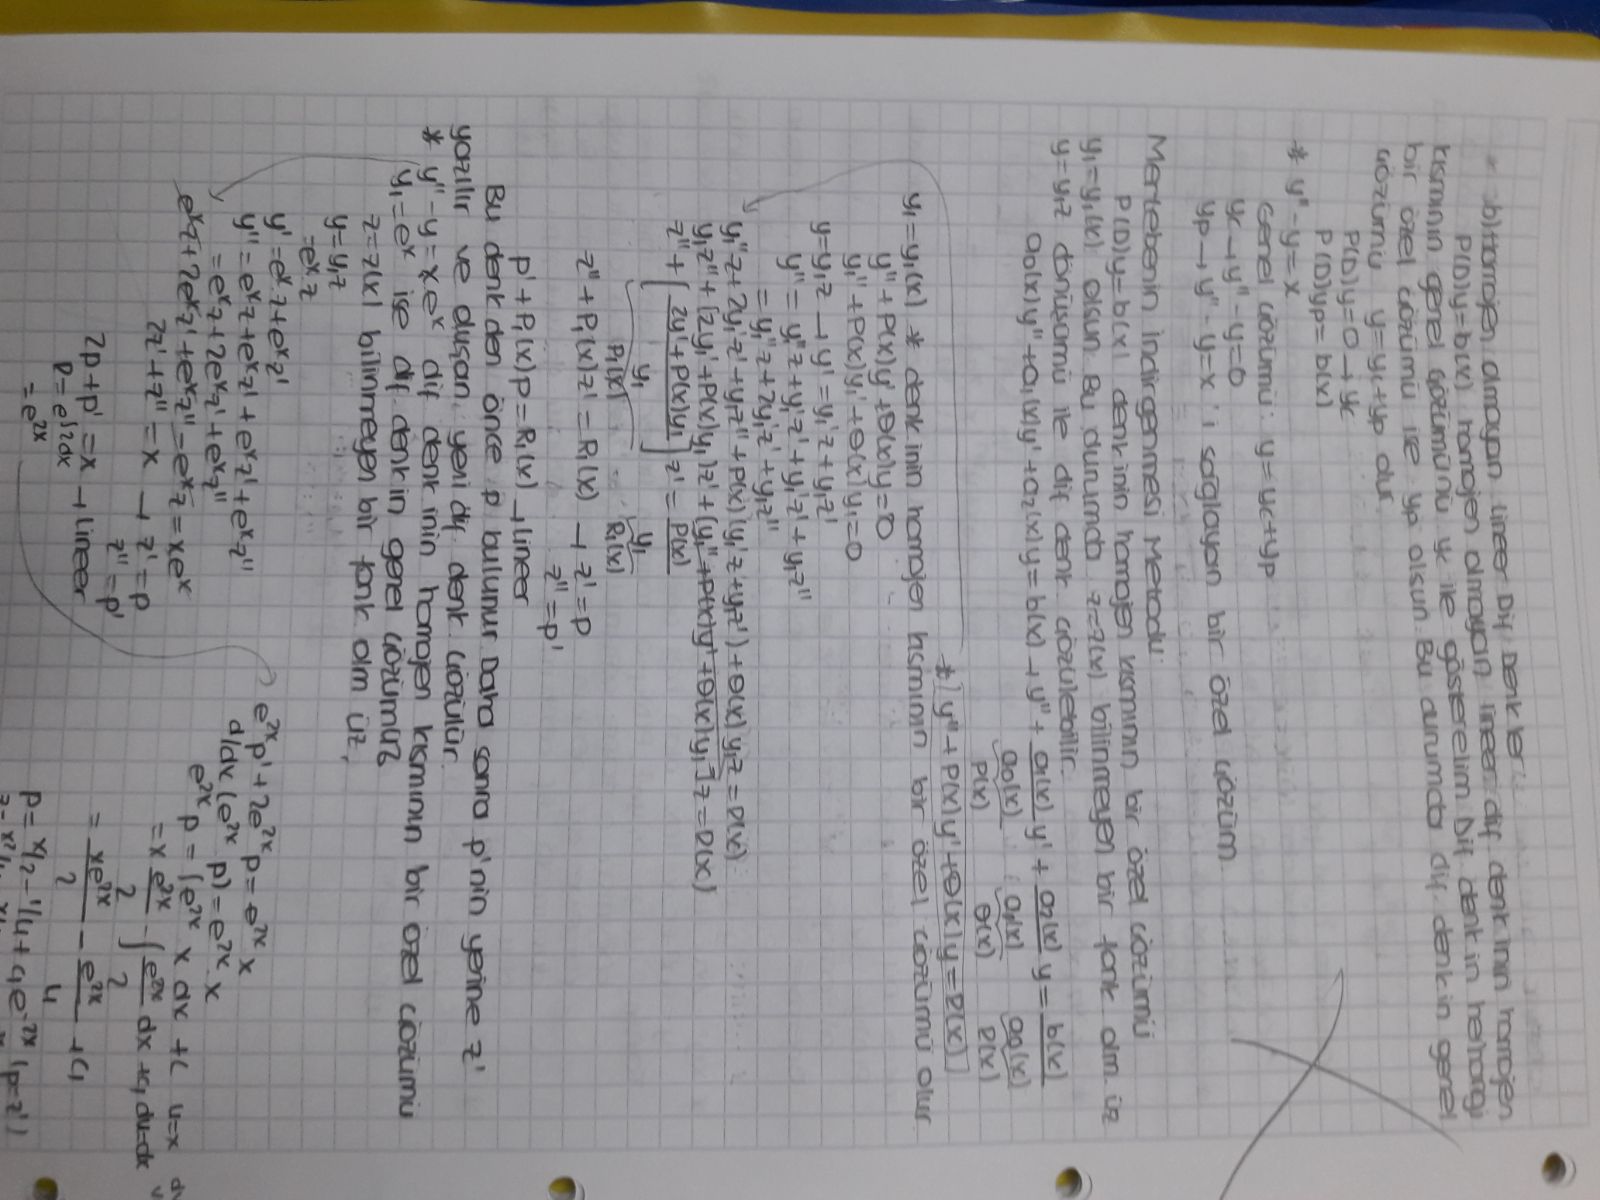 b) Homojen olmayan Lineer Dif Denkler:
P(D)y=b(x) homojen olmayan lineer dif denk inin homojen
kısmının genel çözümünü yc ile gösterelim Dif denk in herhangi
bir özel çözümü ise yp olsun. Bu durumda dif denk in genel
çözümü y=yc+yp olur.
P(D)y=0 → yc
P(D)yp=b(x)
* y''-y=x
Genel çözümü: y=yc+yp
yc → y''-y=0
yp → y''-y=x 'i sağlayan bir özel çözüm
Mertebenin indirgenmesi Metodu:
P(D)y=b(x) denk inin homojen kısmının bir özel çözümü
y₁=y₁(x) olsun Bu durumda z=z(x) bilinmeyen bir fonk olm üz
y=y₁z dönüşümü ile dif denk çözülebilir.
a0(x)y''+a₁(x)y'+a₂(x)y=b(x) → y''+ a₁(x)/a0(x) y' + a₂(x)/a0(x) y = b(x)/a0(x)
P(x) Q(x) R(x)
* [y''+P(x)y'+Q(x)y=R(x)]
y₁=y₁(x) * denk inin homojen kısmının bir özel çözümü olur
y''+P(x)y'+Q(x)y=0
y₁''+P(x)y₁'+Q(x)y₁=0
y=y₁z → y'=y₁'z+y₁z'
y''= y₁''z+y₁'z'+y₁'z'+y₁z''
= y₁''z+2y₁'z'+y₁z''
y₁''z+2y₁'z'+y₁z''+P(x)(y₁'z+y₁z')+Q(x)y₁z=R(x)
y₁z''+[2y₁'+P(x)y₁]z'+[y₁''+P(x)y'+Q(x)y₁]z=R(x)
z''+[ 2y'+P(x)y₁ / y₁ ] z' = P(x) / y₁
P₁(x) R₁(x)
z''+P₁(x)z'=R₁(x) → z'=p
z''=p'
p'+P₁(x)p=R₁(x) → lineer
Bu denk den önce p bulunur Daha sonra p'nin yerine z'
yazılır ve oluşan yeni dif denk çözülür.
* y''-y=xeˣ dif denk inin homojen kısmının bir özel çözümü
y₁=eˣ ise dif denk in genel çözümü?
z=z(x) bilinmeyen bir fonk olm üz,
y=y₁z
=eˣ.z
y'=eˣ.z+eˣz'
y''=eˣz+eˣz'+eˣz'+eˣz''
=eˣz+2eˣz'+eˣz''
eˣz+2eˣz'+eˣz''-eˣz=xeˣ
2z'+z''=x → z'=p
z''=p'
2p+p'=x → lineer
R=e^∫2dx
=e²ˣ
e²ˣp'+2e²ˣp=e²ˣx
d/dx(e²ˣ p)=e²ˣ.x
e²ˣp=∫e²ˣ x dx +C u=x
=x e²ˣ/2 - ∫ e²ˣ/2 dx +c₁ du=dx
= xe²ˣ/2 - e²ˣ/4 +c₁
p=x/2-1/4+c₁e⁻²ˣ (p=z')